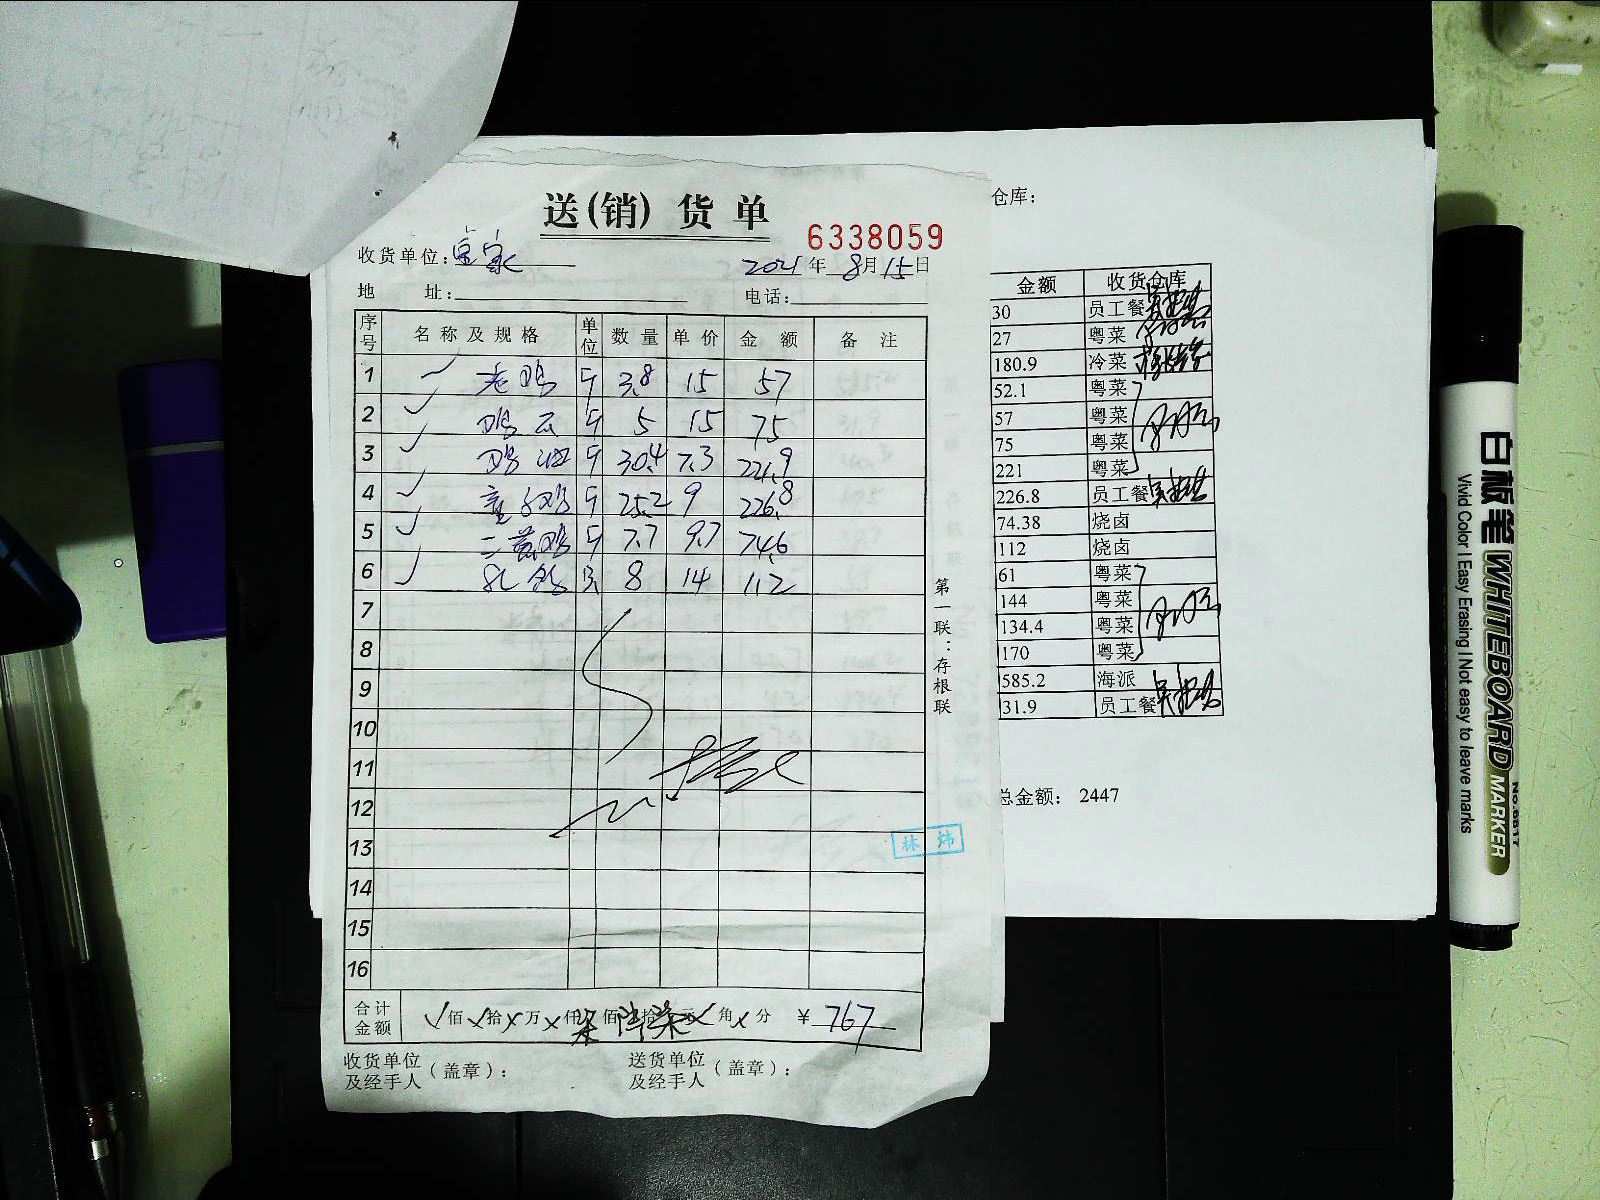 送(销)货单
6338059
收货单位:宜家
2021年8月15日
地 址: 电话:
序号 名称及规格 单位 数量 单价 金额 备注
1 老鸡 斤 3.8 15 57
2 鸡 斤 5 15 75
3 鸡 斤 30.4 7.3 221.9
4 童子鸡 斤 25.2 9 226.8
5 三黄鸡 斤 7.7 9.7 74.6
6 乳鸽 只 8 14 112
7
8
9
10
11
12
13
14
15
16
林炜
合计金额 佰 拾 万 仟 柒佰 陆拾 柒元 角 分 ¥ 767
收货单位及经手人(盖章):
送货单位及经手人(盖章):
第一联:存根联
仓库:
金额 收货仓库
30 员工餐
27 粤菜
180.9 冷菜
52.1 粤菜
57 粤菜
75 粤菜
221 粤菜
226.8 员工餐
74.38 烧卤
112 烧卤
61 粤菜
144 粤菜
134.4 粤菜
170 粤菜
585.2 海派
31.9 员工餐
总金额: 2447
白板笔 WHITEBOARD MARKER
Vivid Color | Easy Erasing | Not easy to leave marks